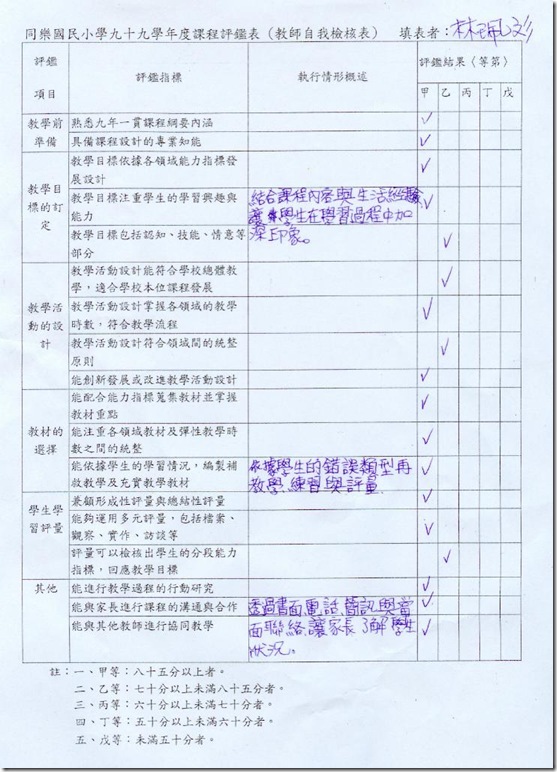 同樂國民小學九十九學年度課程評鑑表（教師自我檢核表） 填表者：林珮彣
評鑑項目 評鑑指標 執行情形概述 評鑑結果（等第）
甲 乙 丙 丁 戊
教學前準備
熟悉九年一貫課程綱要內涵 ✓
具備課程設計的專業知能 ✓
教學目標的訂定
教學目標依據各領域能力指標發
展設計 ✓
教學目標注重學生的學習興趣與
能力 ✓
結合課程內容與生活經驗,
讓學生在學習過程中加
深印象。
教學目標包括認知、技能、情意等
部分 ✓
教學活動的設計
教學活動設計能符合學校總體教
學，適合學校本位課程發展 ✓
教學活動設計掌握各領域的教學
時數，符合教學流程 ✓
教學活動設計符合領域間的統整
原則 ✓
能創新發展或改進教學活動設計 ✓
教材的選擇
能配合能力指標蒐集教材並掌握
教材重點 ✓
能注重各領域教材及彈性教學時
數之間的統整 ✓
能依據學生的學習情況，編製補
救教學及充實教學教材 ✓
依據學生的錯誤類型再
教學、練習與評量.
學生學習評量
兼顧形成性評量與總結性評量 ✓
能夠運用多元評量，包括檔案、
觀察、實作、訪談等 ✓
評量可以檢核出學生的分段能力
指標，回應教學目標 ✓
其他
能進行教學過程的行動研究 ✓
能與家長進行課程的溝通與合作 ✓
能與其他教師進行協同教學 ✓
透過書面、電話、簡訊與當
面聯絡,讓家長了解學生
狀況。
註：一、甲等：八十五分以上者。
二、乙等：七十分以上未滿八十五分者。
三、丙等：六十分以上未滿七十分者。
四、丁等：五十分以上未滿六十分者。
五、戊等：未滿五十分者。